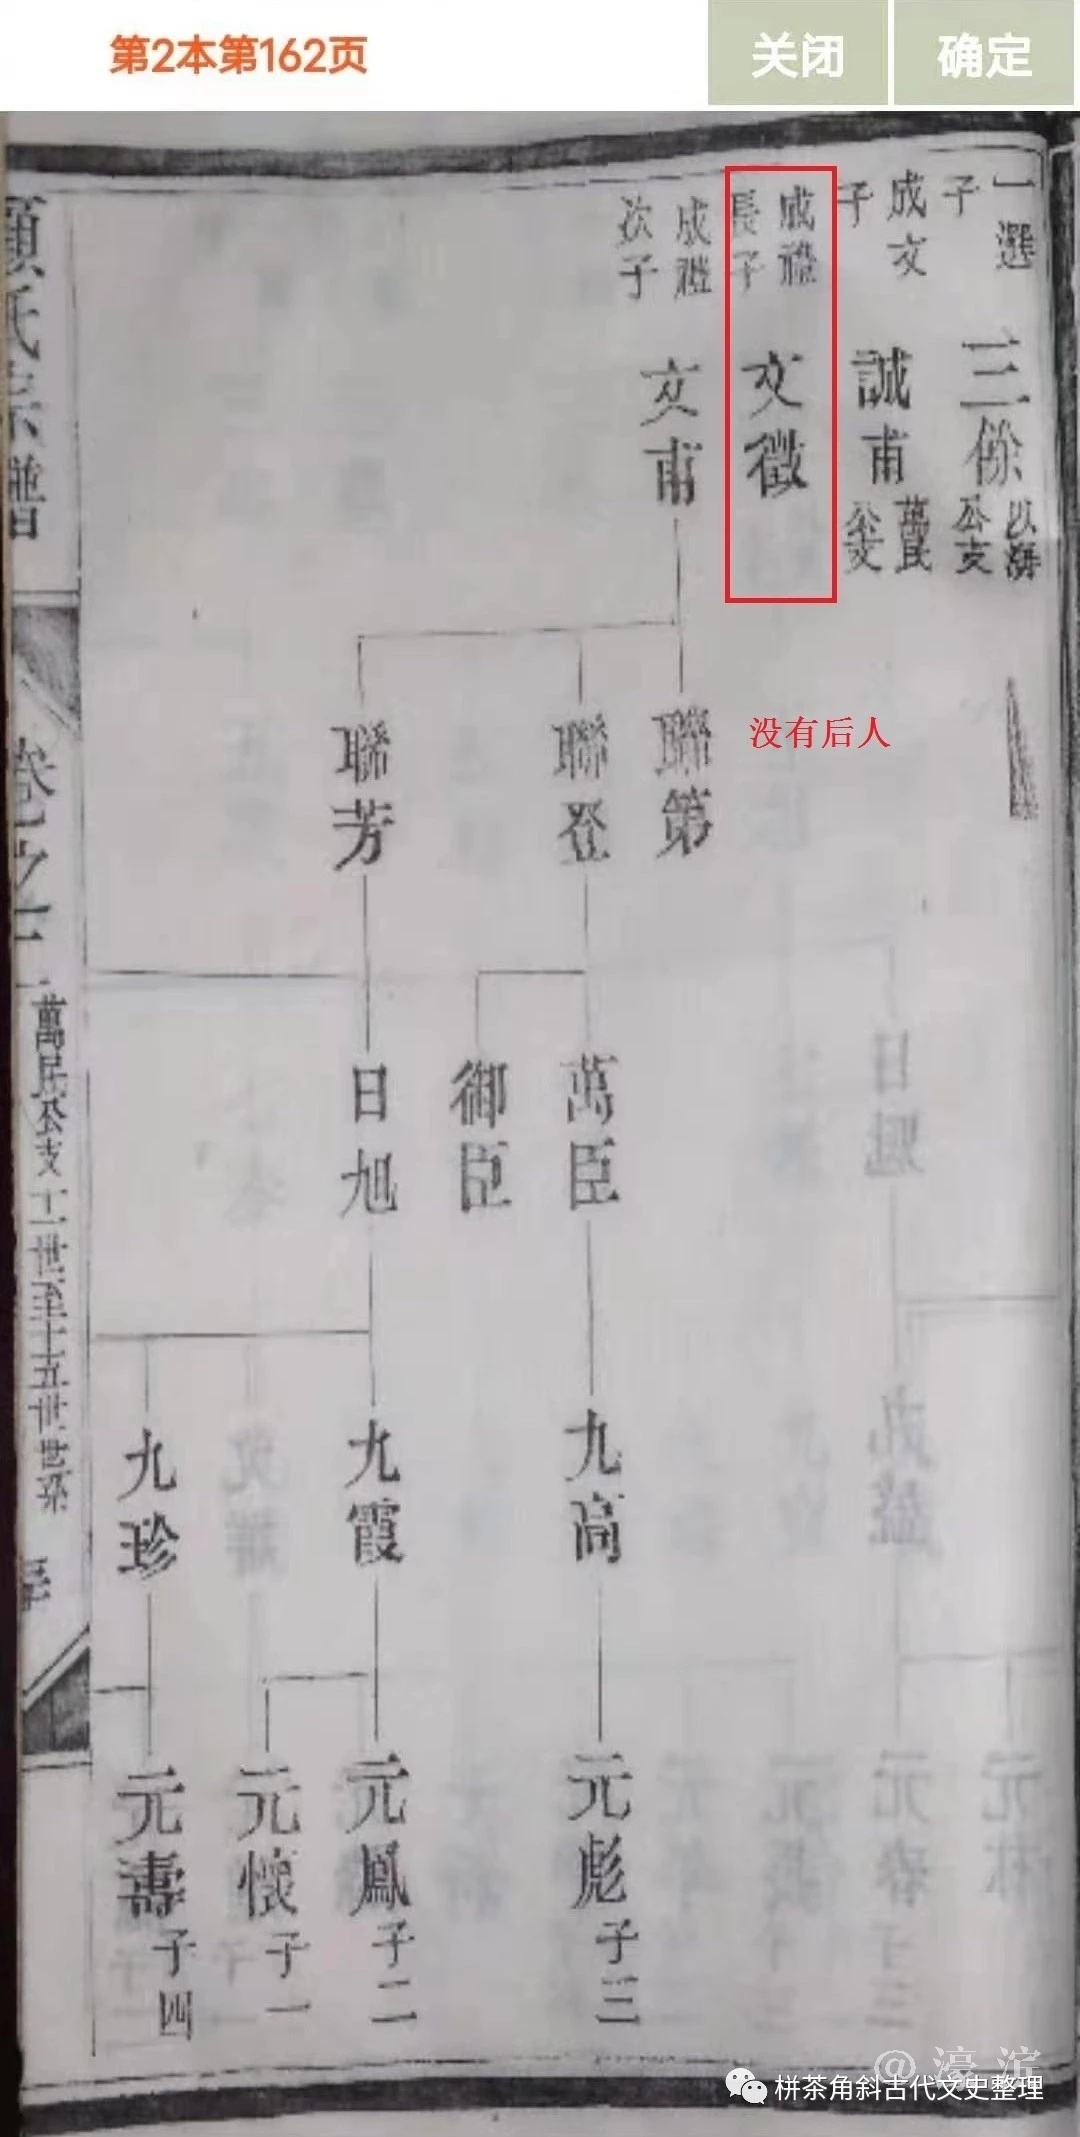 第2本第162页
关闭
确定
一選
子
三餘
以海
公支
成文
子
誠甫
萬民
公支
成禮
長子
文徵
成禮
次子
文甫
没有后人
聯第
聯登
聯芳
萬臣
御臣
日旭
九高
九霞
九珍
元彪
子三
元鳳
子二
元懷
子一
元壽
子四
萬民公支
十一世至十五世世系
栟茶角斜古代文史整理
@濠滨